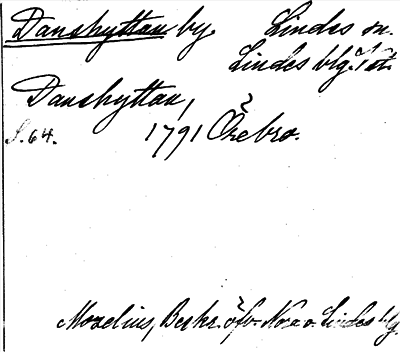 Danshyttan by. Lindes sn.
Lindes blg. Vst.
Danshyttan,
S. 64. 1791 Örebro.
Moxelius, Beskr. öfv. Nora o. Lindes blg.